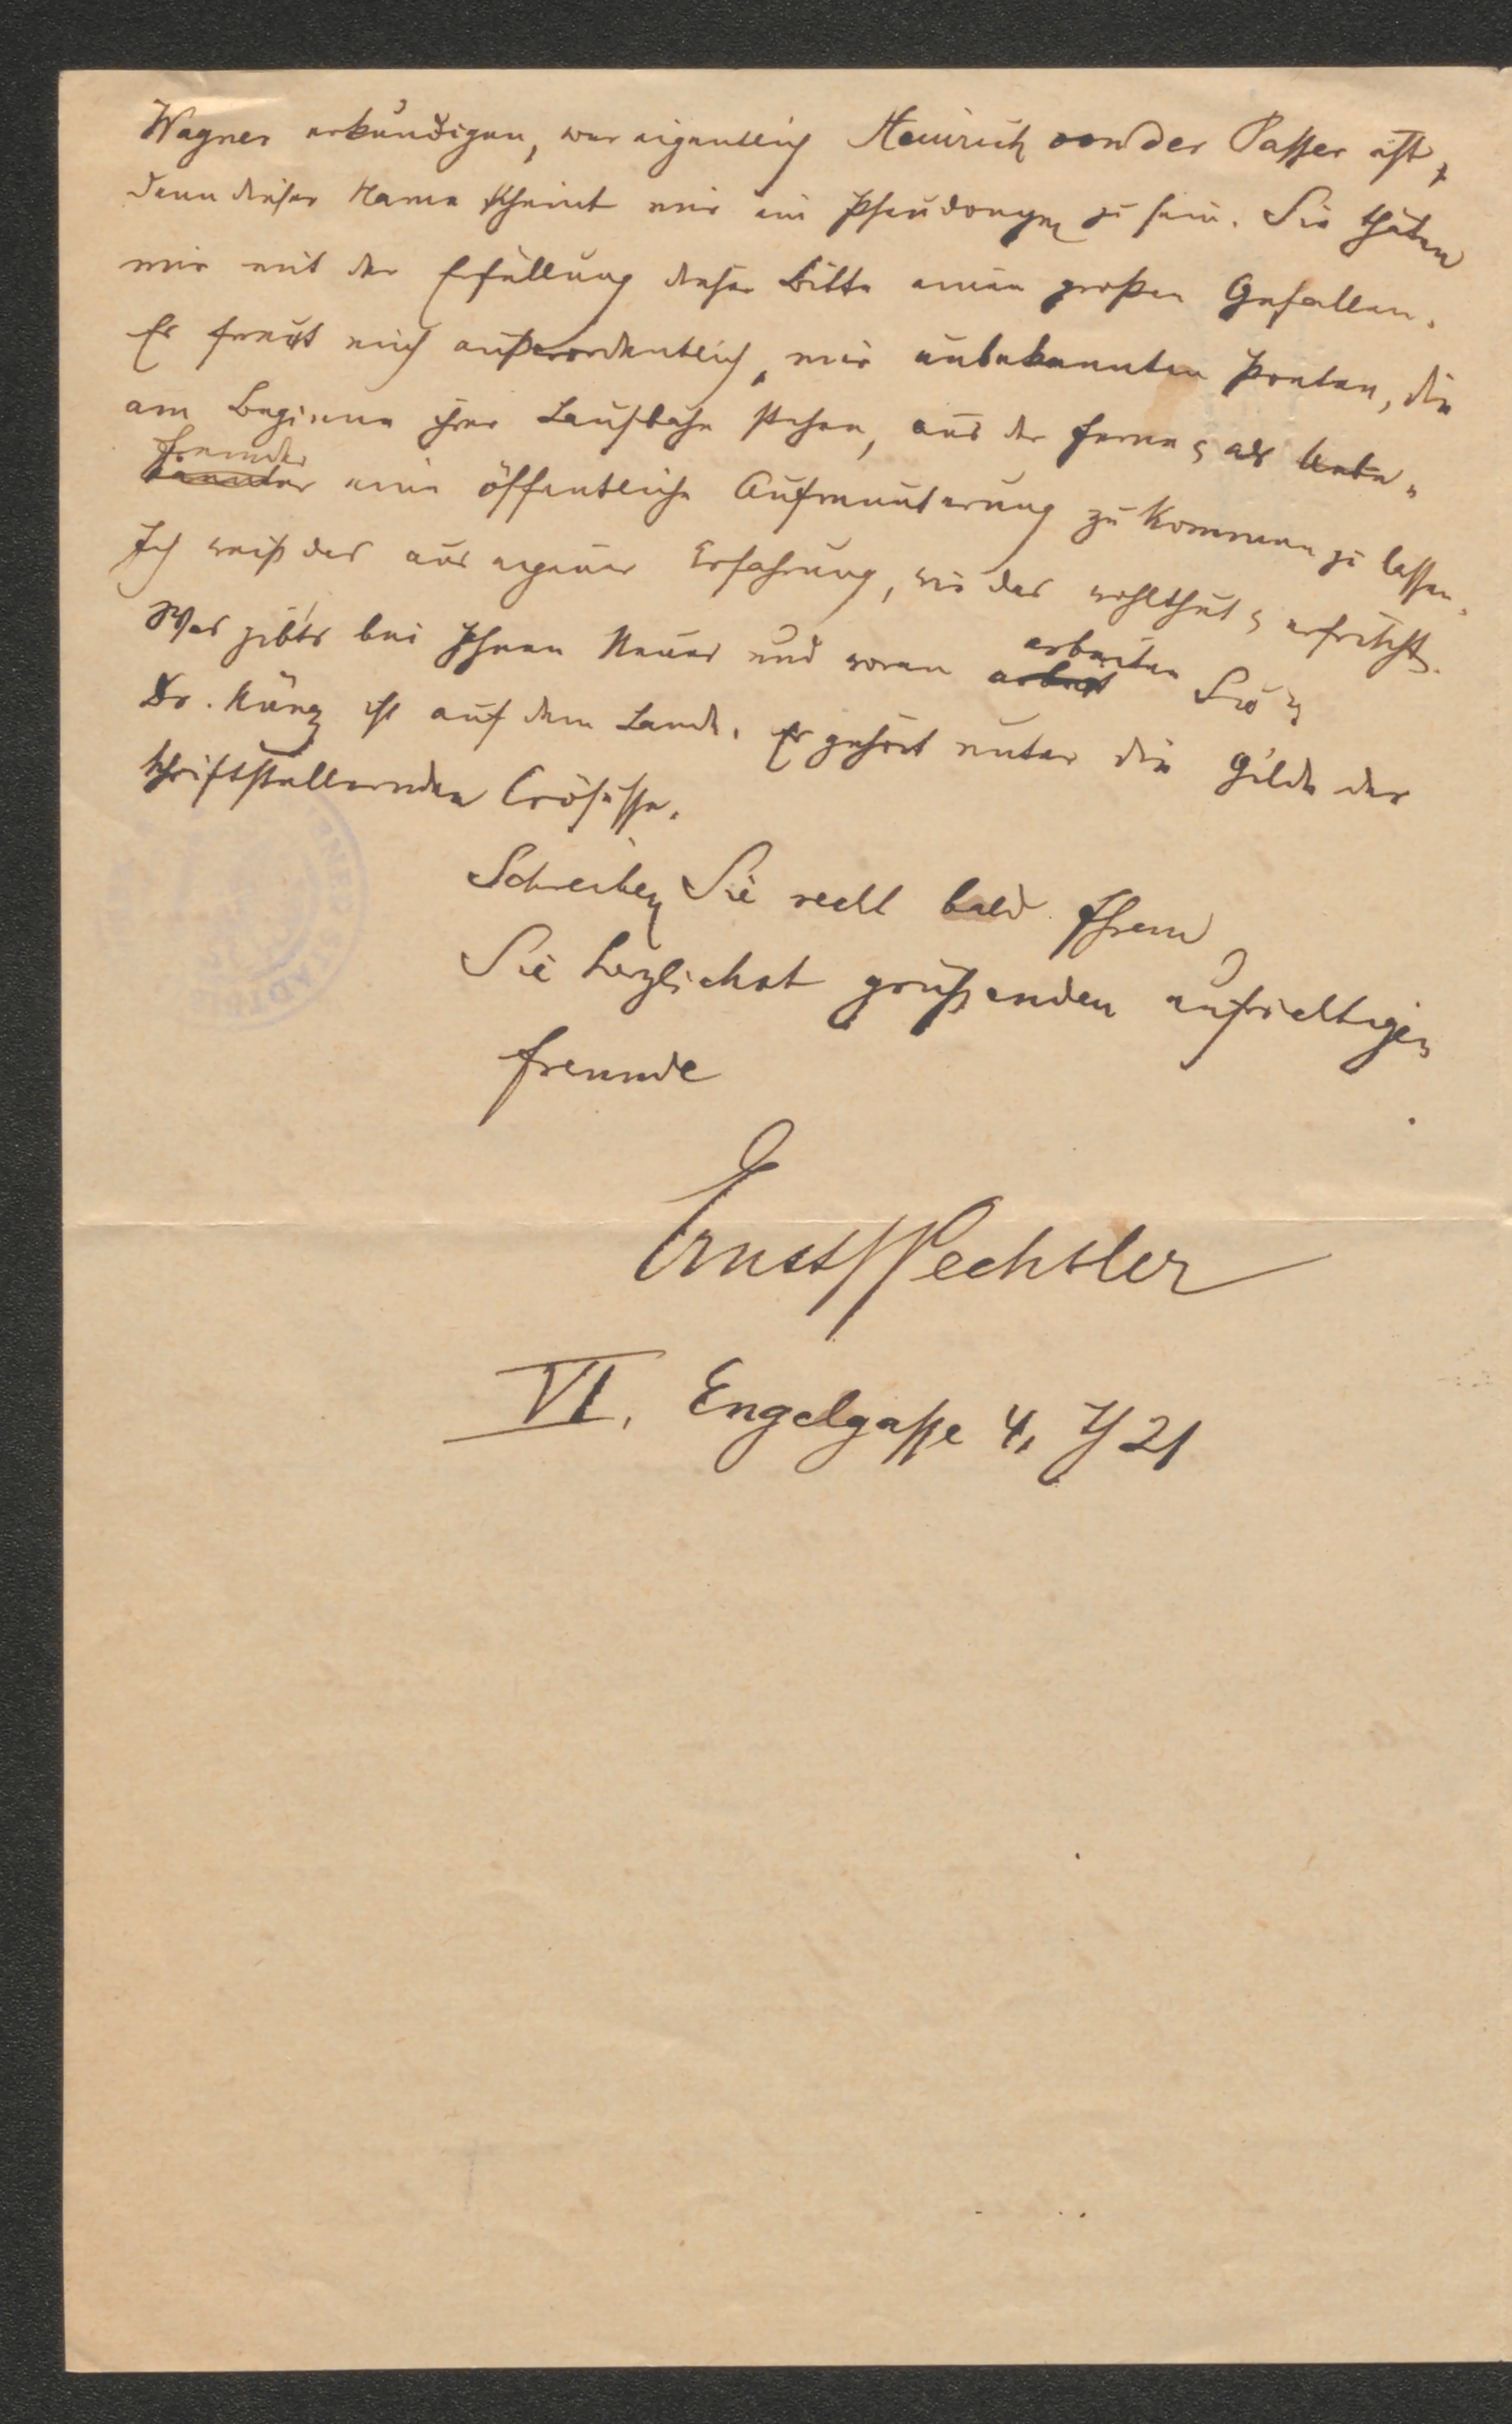 Wagner erkundigen, wer eigentlich Heinrich von der Passer ist,
denn dieser Name scheint mir ein Pseudonym zu sein. Sie thäten
mir mit der Erfüllung dieser Bitte einen großen Gefallen.
Es freut mich außerordentlich, mir unbekannten Poeten, die
am Beginne ihrer Laufbahn stehen, aus der Ferne & als Unbe-
fremder
kannter eine öffentliche Aufmunterung zu kommen zu lassen.
Ich weiß das aus eigener Erfahrung, wie das wohlthut & erfrischt.
Was gibt's bei Ihnen Neues und woran arbeiten Sie?
Dr. ist auf dem Lande. Er gehört unter die Gilde der
schriftstellernden Crösusse.
Schreiben Sie recht bald Ihrem
Sie herzlichst grüßenden aufrichtigen
Freunde
Ernst Wechsler
VI. Engelgasse 4, 21